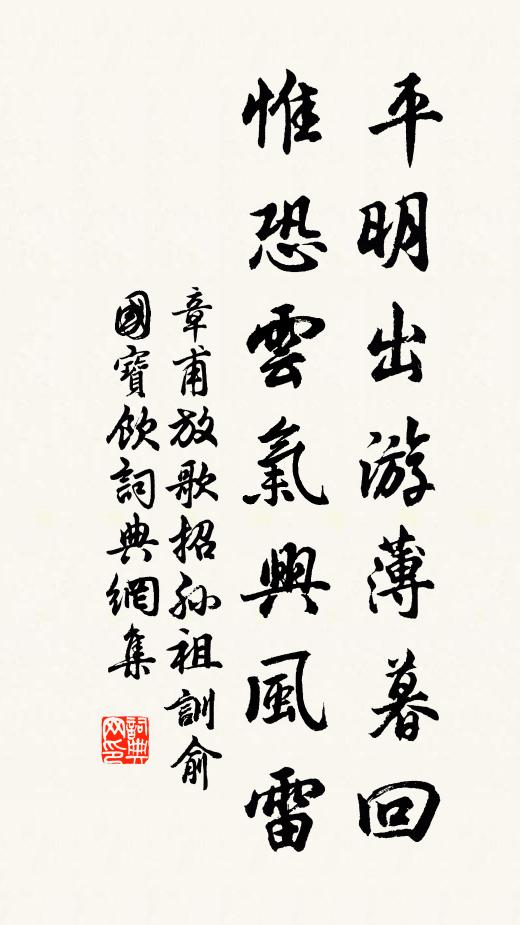 平明出游薄暮回
惟恐雲氣興風雷
章甫放歌招孙祖訓俞
國寶飲詞典網集
詞典
网印